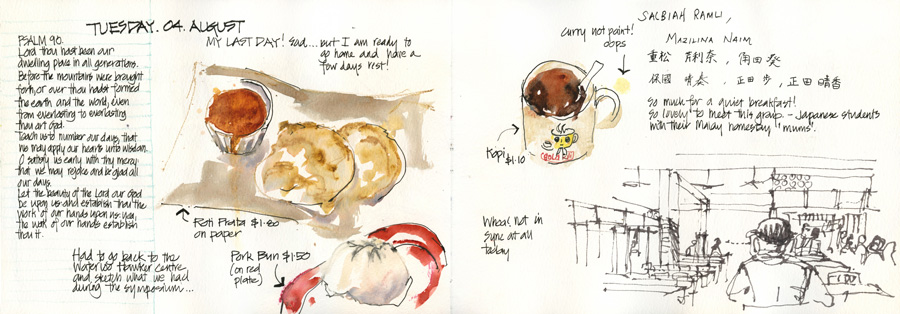 TUESDAY. 04. AUGUST
PSALM 90.
Lord thou hast been our
dwelling place in all generations.
Before the mountains were brought
forth, or ever thou hadst formed
the earth and the world, even
from everlasting to everlasting
thou art God.
Teach us to number our days, that
we may apply our hearts unto wisdom.
O satisfy us early with thy mercy
that we may rejoice and be glad all
our days.
Let the beauty of the Lord our God
be upon us and establish thou the
work of our hands upon us yea,
the work of our hands establish
thou it.
MY LAST DAY! Sad....but I am ready to
go home and have a
few days rest!
Roti Prata $1.80
on paper
Had to go back to the
Waterloo Hawker Centre
and sketch what we had
during the symposium...
Pork Bun $1.50
(on red
plate)
curry not paint!
oops
Kopi $1.10
GOLD
SALBIAH RAMLI,
MAZILINA NAIM
重松 利奈, 角田 葵
保國 奏, 正田 歩, 正田 晴香
So much for a quiet breakfast!
So lovely to meet this group - Japanese students
with their Malay homestay 'mums'.
Whoa! not in
sync at all
today